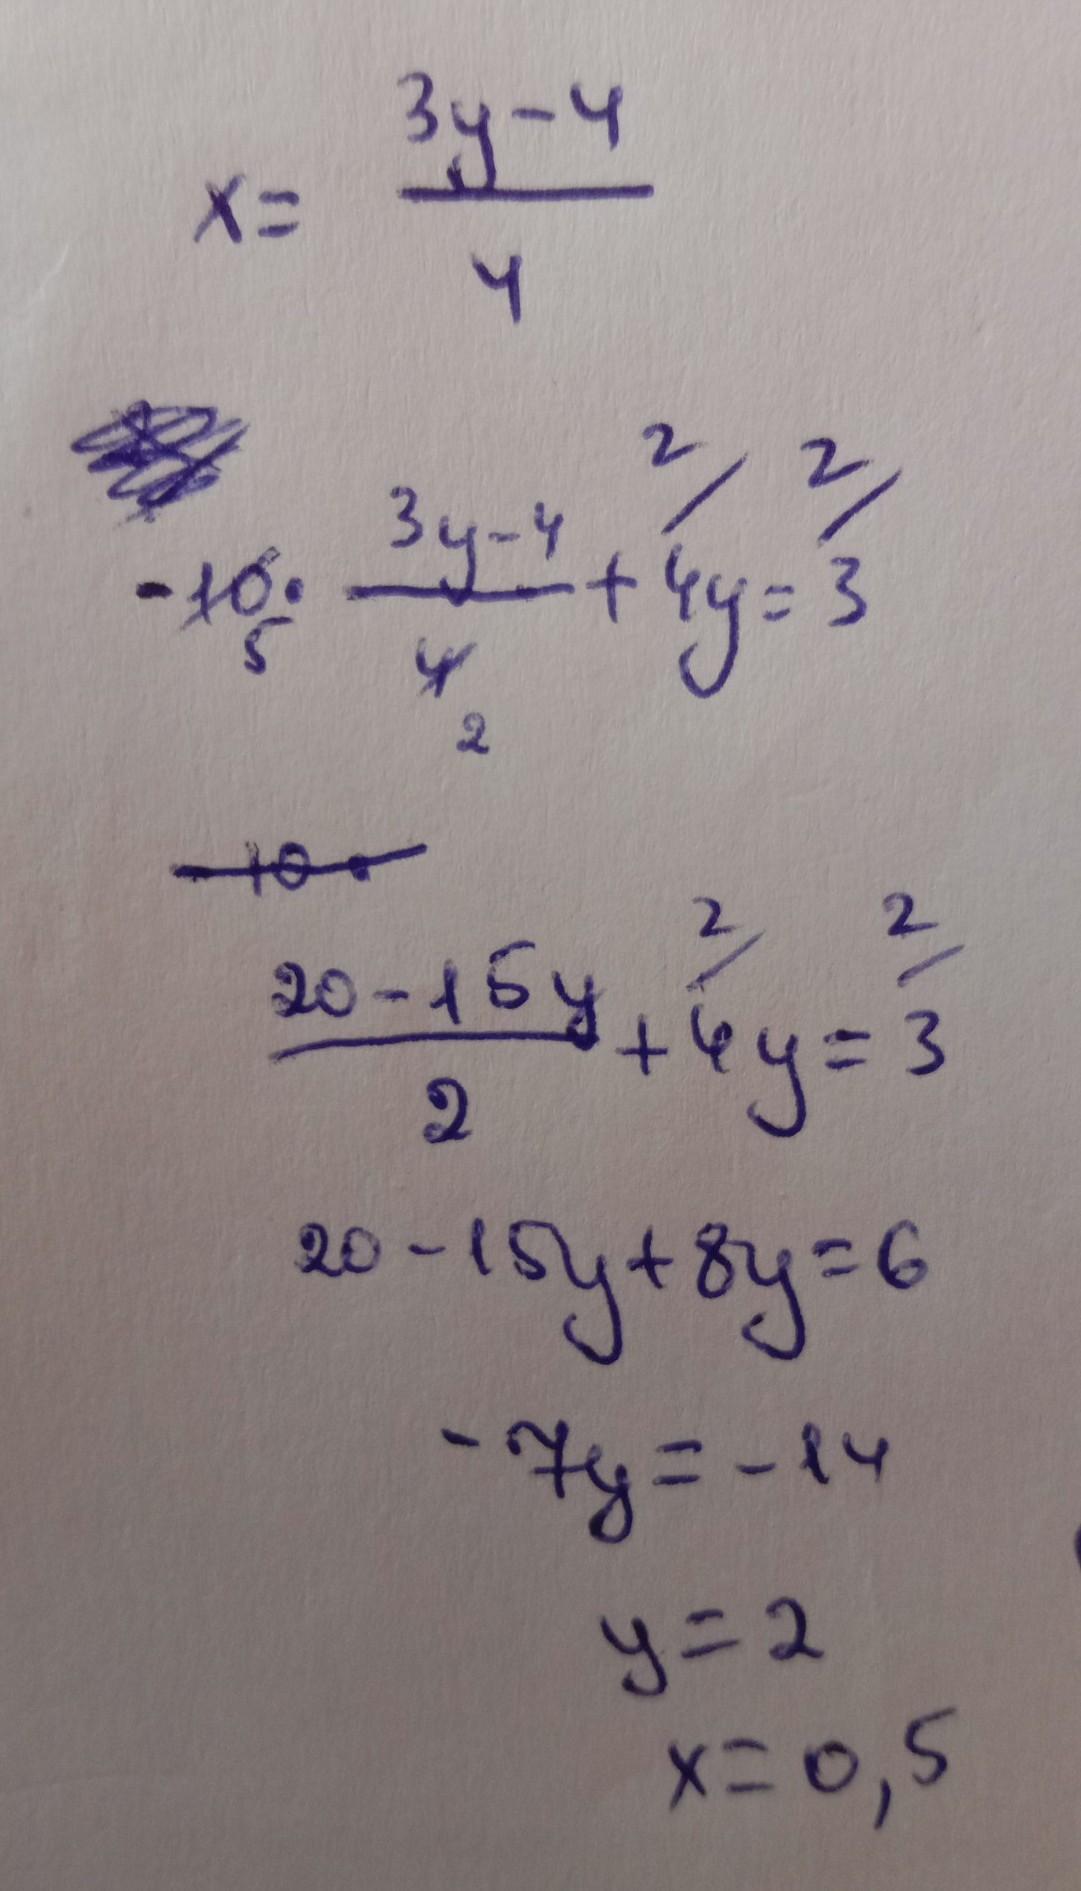 x = (3y-4)/4
-10/5 · (3y-4)/4/2 + 2/4y = 2/3
-10 ·
(20-15y)/2 + 2/4y = 2/3
20-15y+8y=6
-7y=-14
y=2
x=0,5